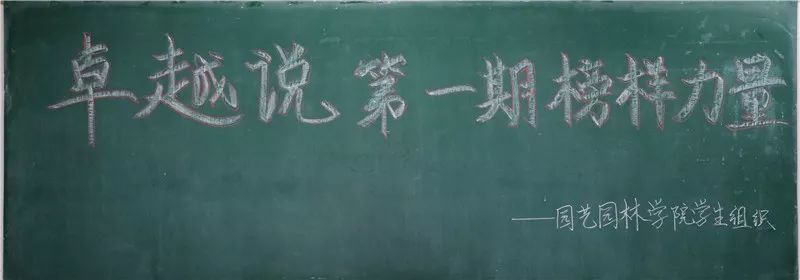 卓越说 第一期榜样力量
——园艺园林学院学生组织